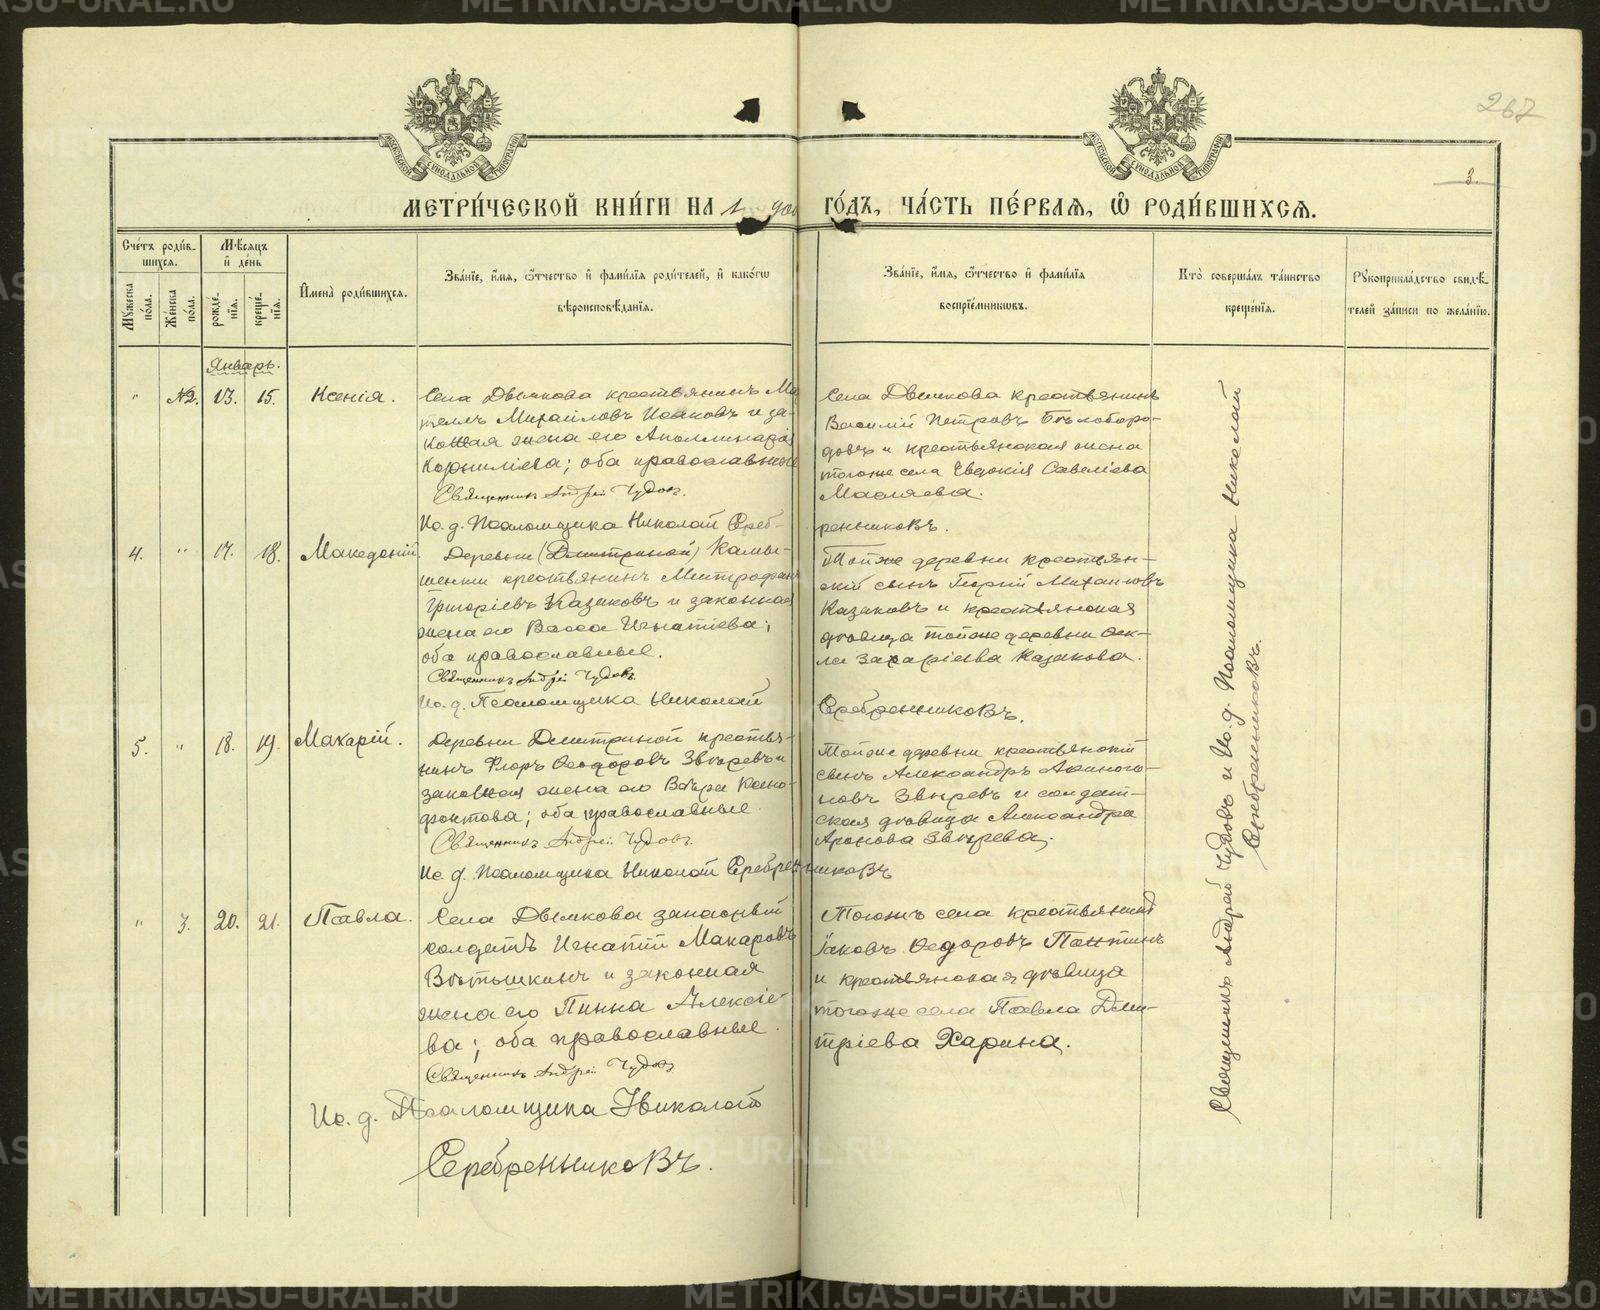 267
3.
МОСКОВСКОЙ СѴНОДАЛЬНОЙ ТИПОГРАФІИ
МОСКОВСКОЙ СѴНОДАЛЬНОЙ ТИПОГРАФІИ
МЕТРИ́ЧЕСКОЙ КНИ́ГИ НА 1 900 ГО́ДЪ, ЧА́СТЬ ПЕ́РВАЯ, Ѿ РОДИ́ВШИХСЯ.
Сче́тъ роди́в-
шихся.
Мꙋжеска по́ла.
Же́нска по́ла.
Мѣ́сяцъ и҆ де́нь
рожде́-
нїя.
креще́-
нїя.
И҆мена̀ роди́вшихся.
Зва́нїе, и҆́мя, ѻ҆́тчество и҆ фами́лїя роди́телей, и҆ како́гѡ
вѣроисповѣ́данїя.
Зва́нїе, и҆́мя, ѻ҆́тчество и҆ фами́лїя
воспрїе́мниковъ.
Кто̀ соверша́лъ та́инство
креще́нїя.
Рꙋкоприкла́дство свидѣ́-
телей за́писи по жела́нїю.
Январь.
" №2. 13. 15. Ксенія.
Села Двинкова крестьянинъ
Михайловъ Исаковъ и за-
конная жена его Аполлинарія
Корниліева; оба православные
Священникъ Андрей Чудовъ.
Ис. д. Псаломщика Николай Сереб-
ренниковъ.
Села Двинкова крестьянинъ
Василій Петровъ Бѣлоборо-
довъ и крестьянская жена
тогоже села Евдокія Савеліева
Масляева.
4. " 17. 18. Македоній.
Деревни (Дмитриной) Камы-
шенки крестьянинъ Митрофанъ
Григоріевъ Казаковъ и законная
жена его Васса Игнатіева;
оба православные.
Священникъ Андрей Чудовъ
Ис. д. Псаломщика Николай
Серебренниковъ.
Тойже деревни крестьян-
скій сынъ Георгій Михаиловъ
Казаковъ и крестьянская
дѣвица тойже деревни Фек-
ла Захаріева Казакова.
5. " 18. 19. Макарій.
Деревни Дмитриной крестья-
нинъ Флоръ Ѳеодоровъ Звѣревъ и
законная жена его Вѣра Ксено-
фонтова; оба православные.
Священникъ Андрей Чудовъ.
Ис. д. Псаломщика Николай Серебренниковъ
Тойже деревни крестьянскій
сынъ Александръ
Звѣревъ и солдат-
ская дѣвица Александра
Аронова Звѣрева.
" 3. 20. 21. Павла.
Села Двинкова запасный
солдатъ Игнатій Макаровъ
Вѣтошкинъ и законная
жена его Пинна Алексіе-
ва; оба православные.
Священникъ Андрей Чудовъ
Ис. д. Псаломщика Николай
Серебренниковъ.
Тогожъ села крестьянинъ
Іаковъ Ѳедоровъ Пантинъ
и крестьянская дѣвица
тогоже села Павла Дми-
тріева Харина.
Священникъ Андрей Чудовъ и Ис. д. Псаломщика Николай
Серебренниковъ.
METRIKI.GASO-URAL.RU